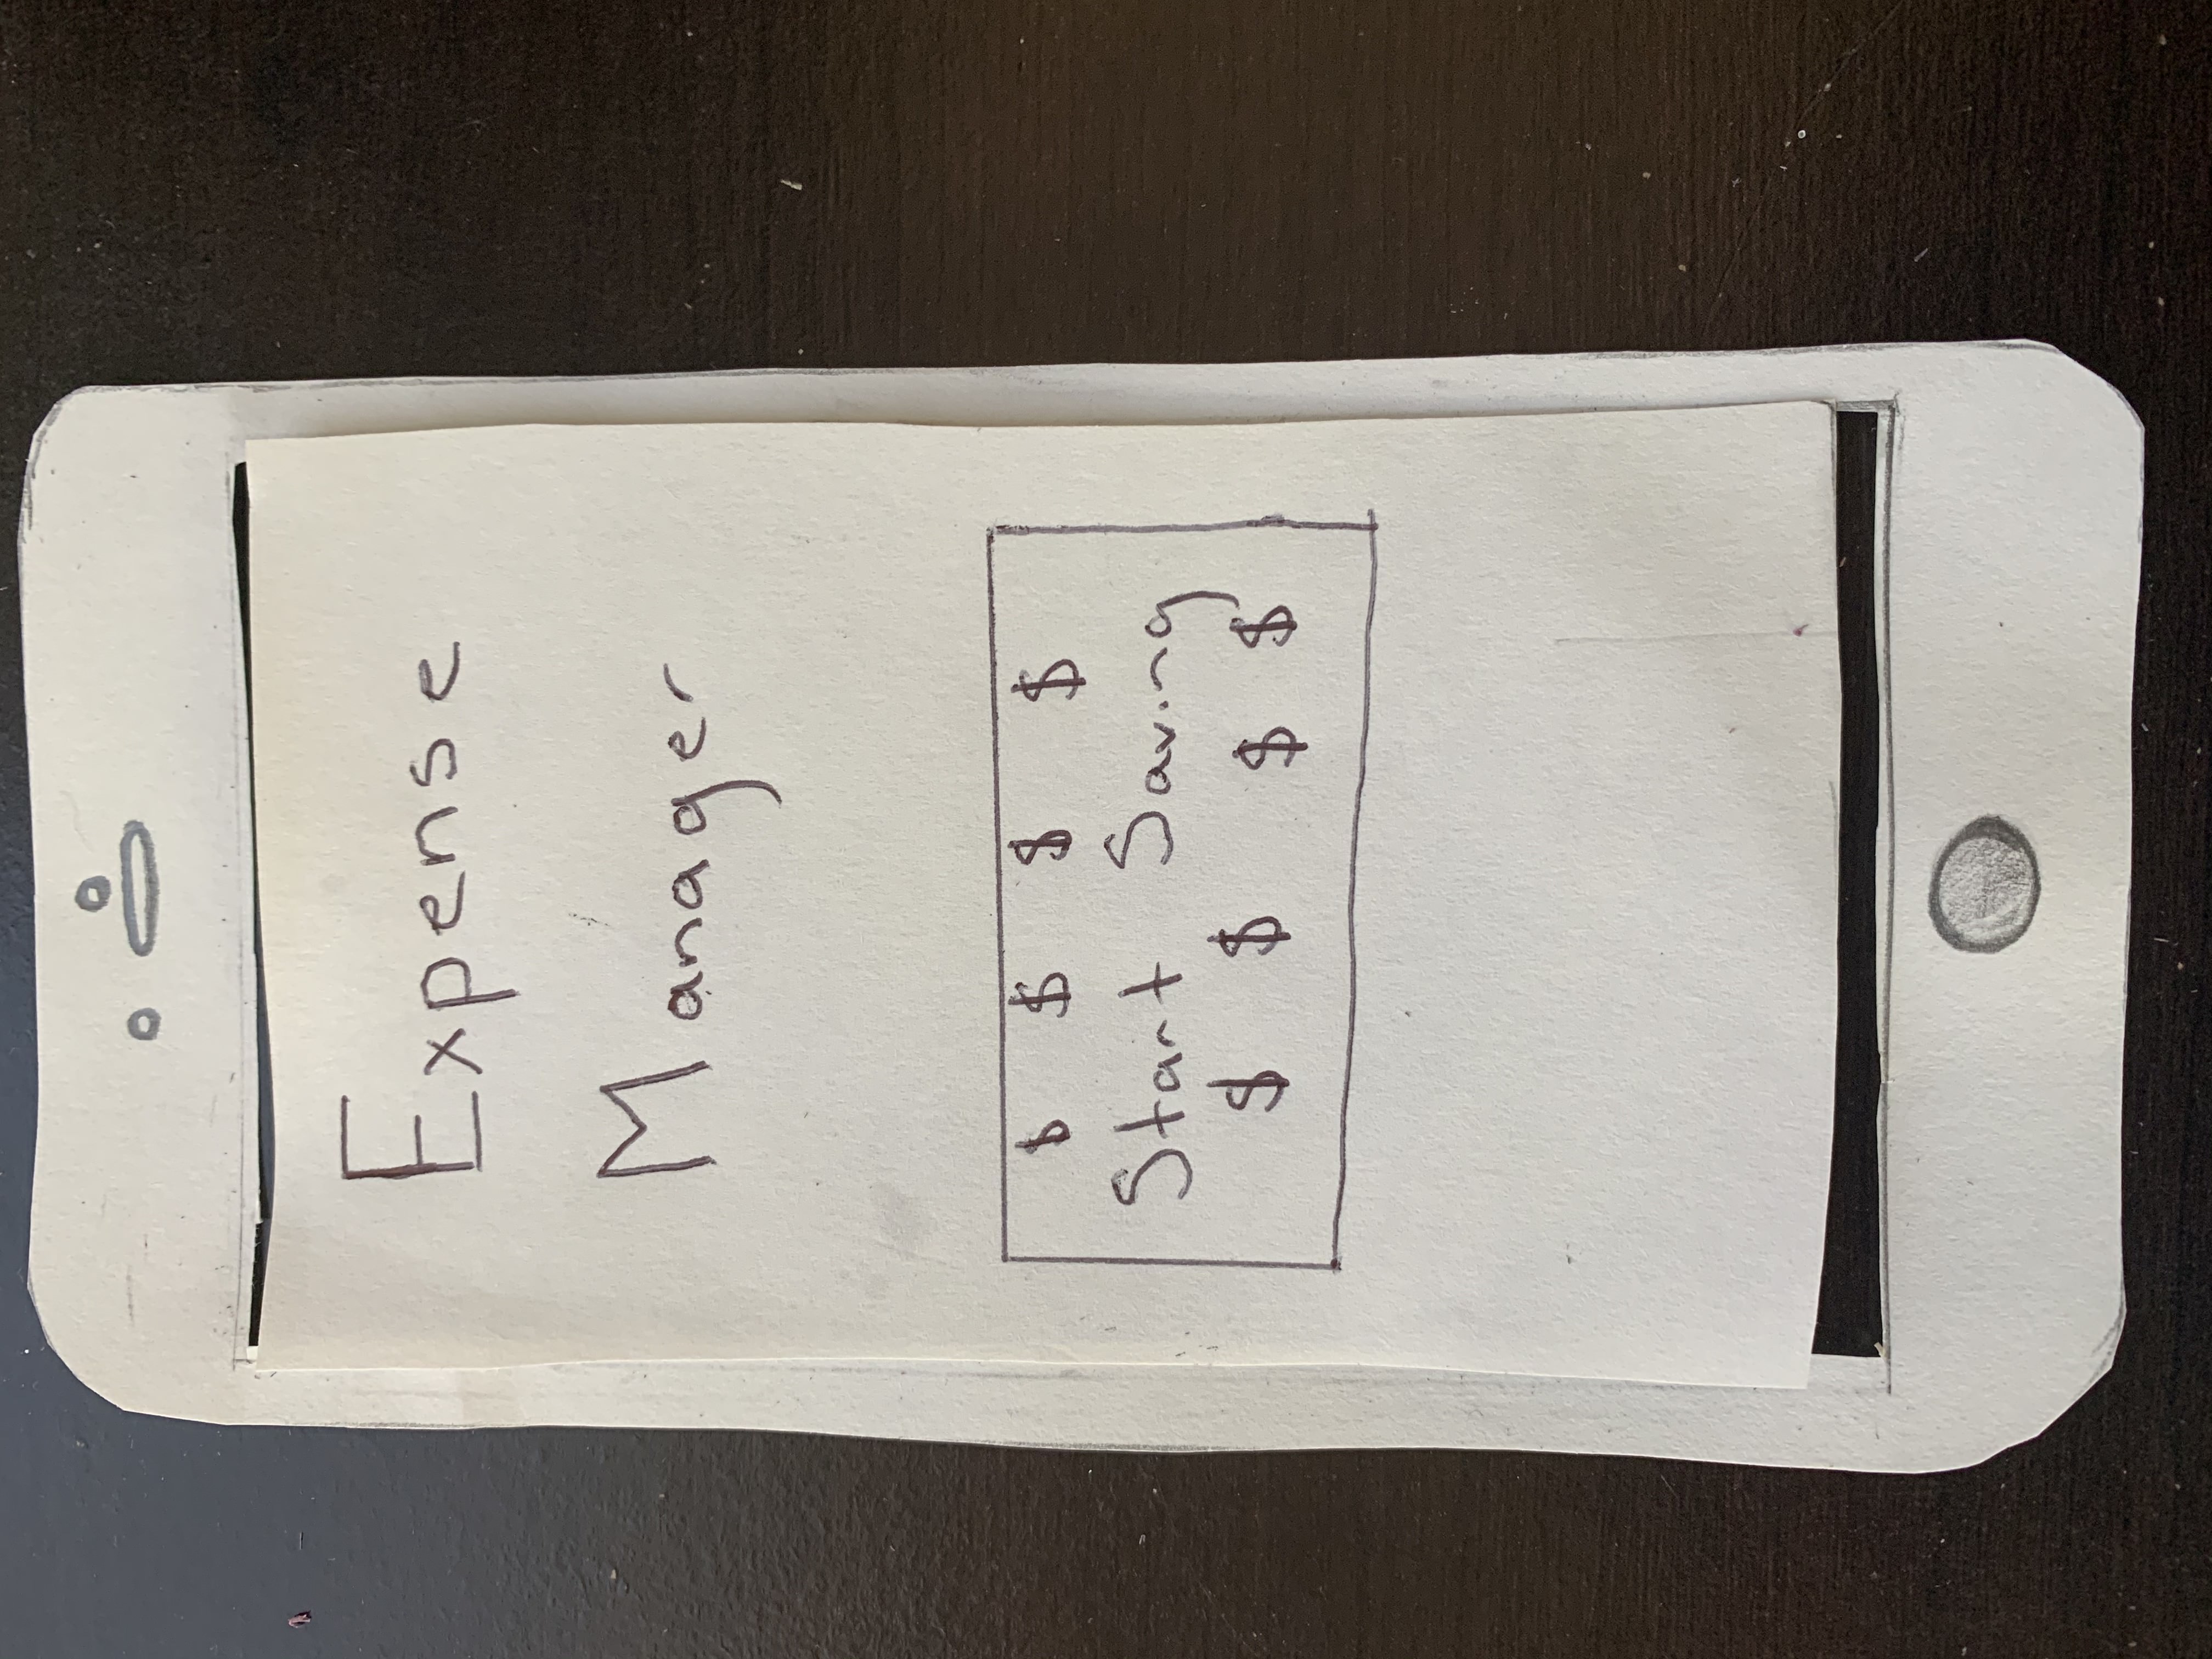 Expense
Manager
$ $ $ $
Start Saving
$ $ $ $